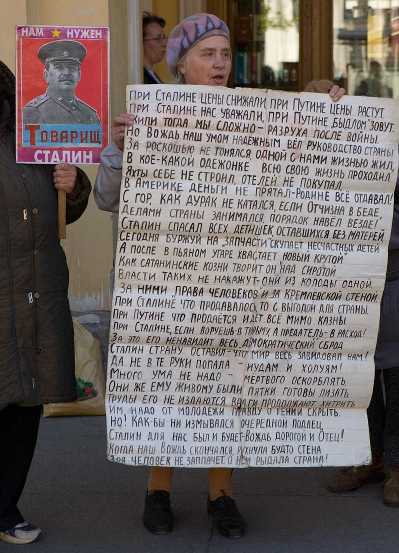 НАМ НУЖЕН
ТОВАРИЩ
СТАЛИН
ПРИ СТАЛИНЕ ЦЕНЫ СНИЖАЛИ, ПРИ ПУТИНЕ ЦЕНЫ РАСТУТ
ПРИ СТАЛИНЕ НАС УВАЖАЛИ, ПРИ ПУТИНЕ БЫДЛОМ ЗОВУТ.
ЖИЛИ ТОГДА МЫ СЛОЖНО - РАЗРУХА ПОСЛЕ ВОЙНЫ
НО ВОЖДЬ НАШ УМОМ НАДЁЖНЫМ ВЁЛ РУКОВОДСТВО СТРАНЫ
ЗА РОСКОШЬЮ НЕ ГНАЛСЯ, ОДНОЙ С НАМИ ЖИЗНЬЮ ЖИЛ
В КОЕ-КАКОЙ ОДЕЖОНКЕ ВСЮ СВОЮ ЖИЗНЬ ПРОХОДИЛ
ЯХТЫ СЕБЕ НЕ СТРОИЛ, ОТЕЛЕЙ НЕ ПОКУПАЛ
В АМЕРИКЕ ДЕНЬГИ НЕ ПРЯТАЛ - РОДИНЕ ВСЁ ОТДАВАЛ!
С ГОР, КАК ДУРАК НЕ КАТАЛСЯ, ЕСЛИ ОТЧИЗНА В БЕДЕ.
ДЕЛАМИ СТРАНЫ ЗАНИМАЛСЯ, ПОРЯДОК НАВЁЛ ВЕЗДЕ!
СТАЛИН СПАСАЛ ВСЕХ ДЕТИШЕК ОСТАВШИХСЯ БЕЗ МАТЕРЕЙ
СЕГОДНЯ БУРЖУЙ НА ЗАПЧАСТИ СКУПАЕТ НЕСЧАСТНЫХ ДЕТЕЙ
А ПОСЛЕ В ПЬЯНОМ УГАРЕ ХВАСТАЕТ НОВЫЙ "КРУТОЙ"
КАК САТАНИНСКИЕ КОЗНИ ТВОРИТ ОН НАД СИРОТОЙ
ВЛАСТИ ТАКИХ НЕ НАКАЖУТ ОНИ ИЗ КОЛОДЫ ОДНОЙ
ЗА НИМИ ПРАВА ЧЕЛОВЕКОВ И ЗА КРЕМЛЁВСКОЙ СТЕНОЙ
ПРИ СТАЛИНЕ ЧТО ПРОДАВАЛОСЬ ТО С ВЫГОДОЙ ДЛЯ СТРАНЫ
ПРИ ПУТИНЕ ЧТО ПРОДАЁТСЯ ИДЁТ ВСЁ МИМО КАЗНЫ
ПРИ СТАЛИНЕ, ЕСЛИ ВОРУЕШЬ - В ТЮРЬМУ, А ПРЕДАТЕЛЬ - В РАСХОД!
ЗА ЭТО ЕГО НЕНАВИДИТ ВЕСЬ ДЕМОКРАТИЧЕСКИЙ СБРОД
СТАЛИН СТРАНУ ОСТАВИЛ - ЧТО МИР ВЕСЬ ЗАВИДОВАЛ НАМ!
ДА НЕ В ТЕ РУКИ ПОПАЛА - ИУДАМ И ХОЛУЯМ!
МНОГО УМА НЕ НАДО - МЁРТВОГО ОСКОРБЛЯТЬ
ОНИ ЖЕ ЕМУ ЖИВОМУ БЫЛИ ПЯТКИ ГОТОВЫ ЛИЗАТЬ
ТРУДЫ ЕГО НЕ ИЗДАЮТСЯ ВРАГИ ПРОДОЛЖАЮТ ХИТРИТЬ
ИМ НАДО ОТ МОЛОДЁЖИ ПРАВДУ О ГЕНИИ СКРЫТЬ
НО! КАК-БЫ НИ ИЗМЫВАЛСЯ ОЧЕРЕДНОЙ ПОДЛЕЦ,
СТАЛИН ДЛЯ НАС БЫЛ И БУДЕТ - ВОЖДЬ ДОРОГОЙ И ОТЕЦ!
КОГДА НАШ ВОЖДЬ СКОНЧАЛСЯ РУХНУЛА БУДТО СТЕНА
ЗРЯ ЧЕЛОВЕК НЕ ЗАПЛАЧЕТ А НЕМ РЫДАЛА СТРАНА!